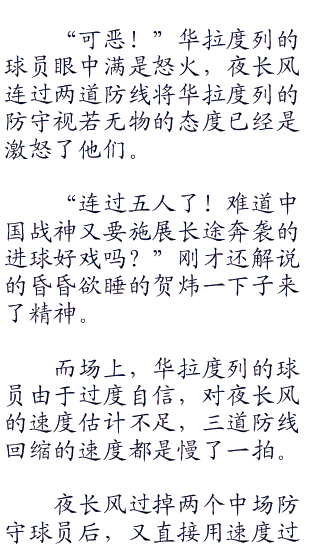 “可恶！”华拉度列的
球员眼中满是怒火，夜长风
连过两道防线将华拉度列的
防守视若无物的态度已经是
激怒了他们。
“连过五人了！难道中
国战神又要施展长途奔袭的
进球好戏吗？”刚才还解说
的昏昏欲睡的贺炜一下子来
了精神。
而场上，华拉度列的球
员由于过度自信，对夜长风
的速度估计不足，三道防线
回缩的速度都是慢了一拍。
夜长风过掉两个中场防
守球员后，又直接用速度过